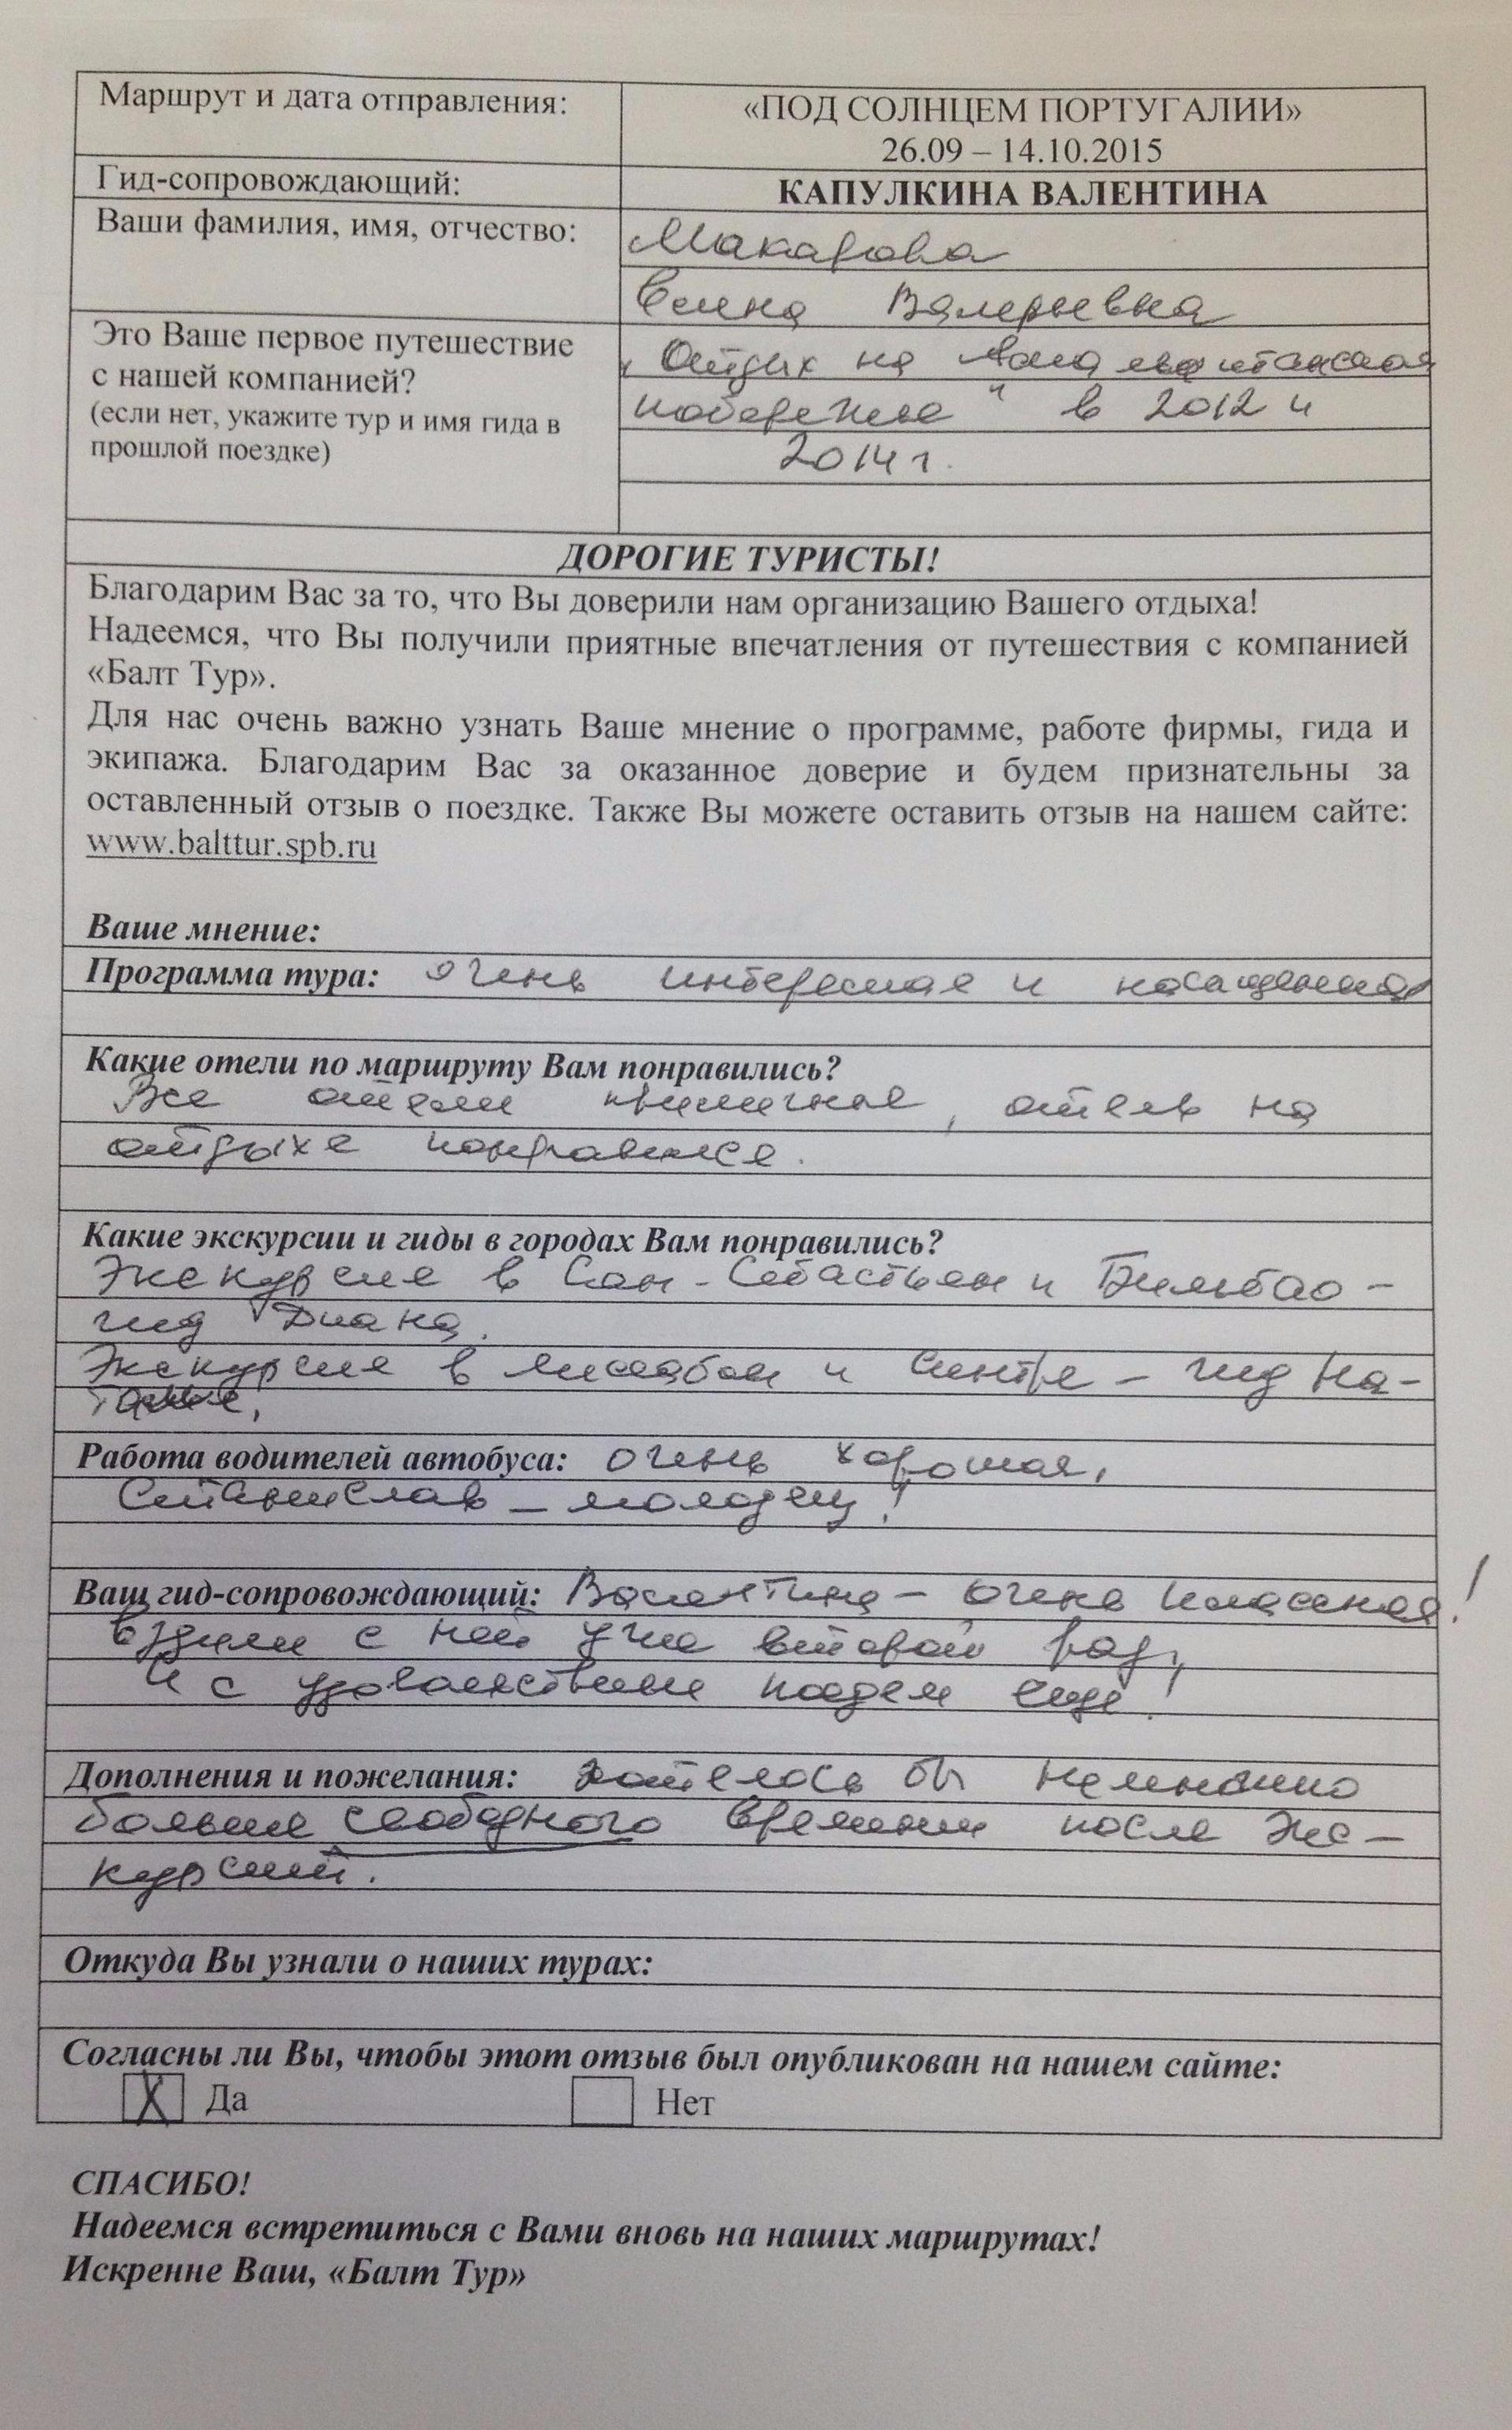 Маршрут и дата отправления:
«ПОД СОЛНЦЕМ ПОРТУГАЛИИ»
26.09 – 14.10.2015
Гид-сопровождающий:
КАПУЛКИНА ВАЛЕНТИНА
Ваши фамилия, имя, отчество:
Макарова
Елена Валерьевна
Это Ваше первое путешествие
с нашей компанией?
(если нет, укажите тур и имя гида в
прошлой поездке)
"Отдых на
побережье" в 2012 и
2014 г.
ДОРОГИЕ ТУРИСТЫ!
Благодарим Вас за то, что Вы доверили нам организацию Вашего отдыха!
Надеемся, что Вы получили приятные впечатления от путешествия с компанией
«Балт Тур».
Для нас очень важно узнать Ваше мнение о программе, работе фирмы, гида и
экипажа. Благодарим Вас за оказанное доверие и будем признательны за
оставленный отзыв о поездке. Также Вы можете оставить отзыв на нашем сайте:
www.balttur.spb.ru
Ваше мнение:
Программа тура: очень интересная и насыщенная
Какие отели по маршруту Вам понравились?
Все отели приличные, отель на
отдыхе понравился.
Какие экскурсии и гиды в городах Вам понравились?
Экскурсия в Сан-Себастьян и Бильбао -
гид Диана.
Экскурсия в Лиссабон и Синтре - гид На-
Работа водителей автобуса: очень хорошая,
Станислав - молодец!
Ваш гид-сопровождающий: Валентина - очень классная!
Ездили с ней уже второй раз,
и с удовольствием поедем еще!
Дополнения и пожелания: хотелось бы немножко
больше свободного времени после экс-
курсий.
Откуда Вы узнали о наших турах:
Согласны ли Вы, чтобы этот отзыв был опубликован на нашем сайте:
X Да Нет
СПАСИБО!
Надеемся встретиться с Вами вновь на наших маршрутах!
Искренне Ваш, «Балт Тур»